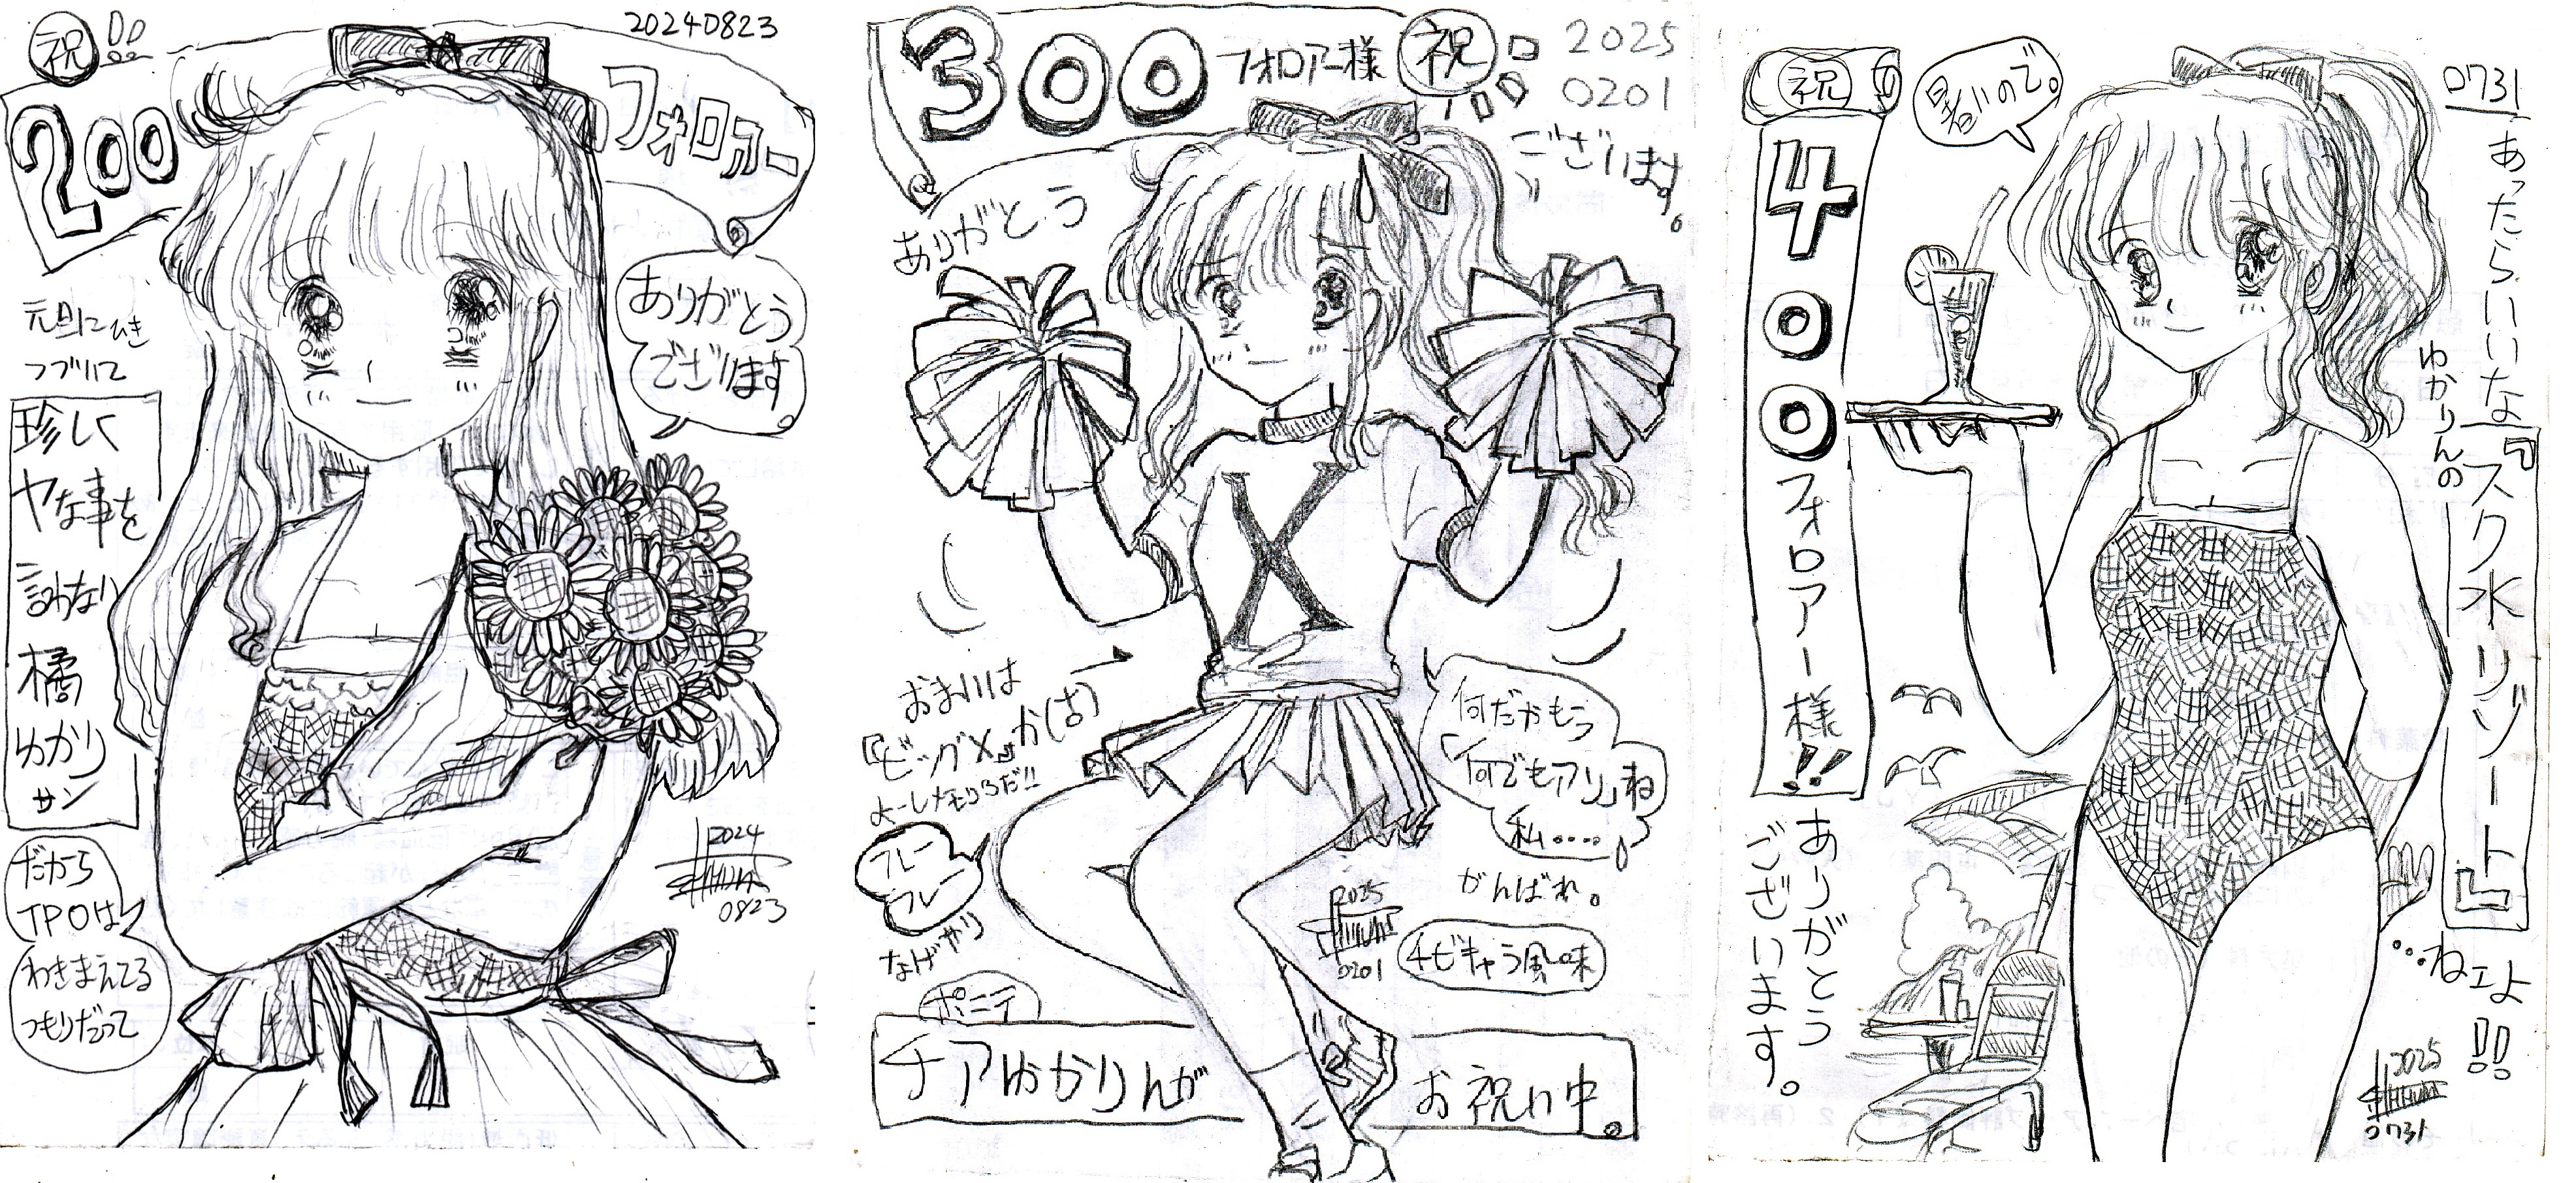 祝!!
20240823
200
フォロワー
ありがとう
ございます。
元旦にひき
つづいて
珍しく
ヤな事を
言わない
橘
ゆかり
サン
だから
TPOは
わきまえてる
つもりだって
2024
0823
300
フォロアー様
祝
2025
0201
ありがとう
ございます。
X
おまいは
『ビッグX』か(古)
よーしメモリ5だ!!
フレー
フレー
なげやり
何だかもう
「何でもアリ」ね
私‥‥
がんばれ。
2025
0201
4ビキャラ風味
ポニテ
チアゆかりんが
お祝い中。
祝
400フォロアー様!!
暑いので。
0731
あったらいいな
ゆかりんの
『スク水リゾート』
…ねェよ!!
ありがとう
ございます。
2025
0731